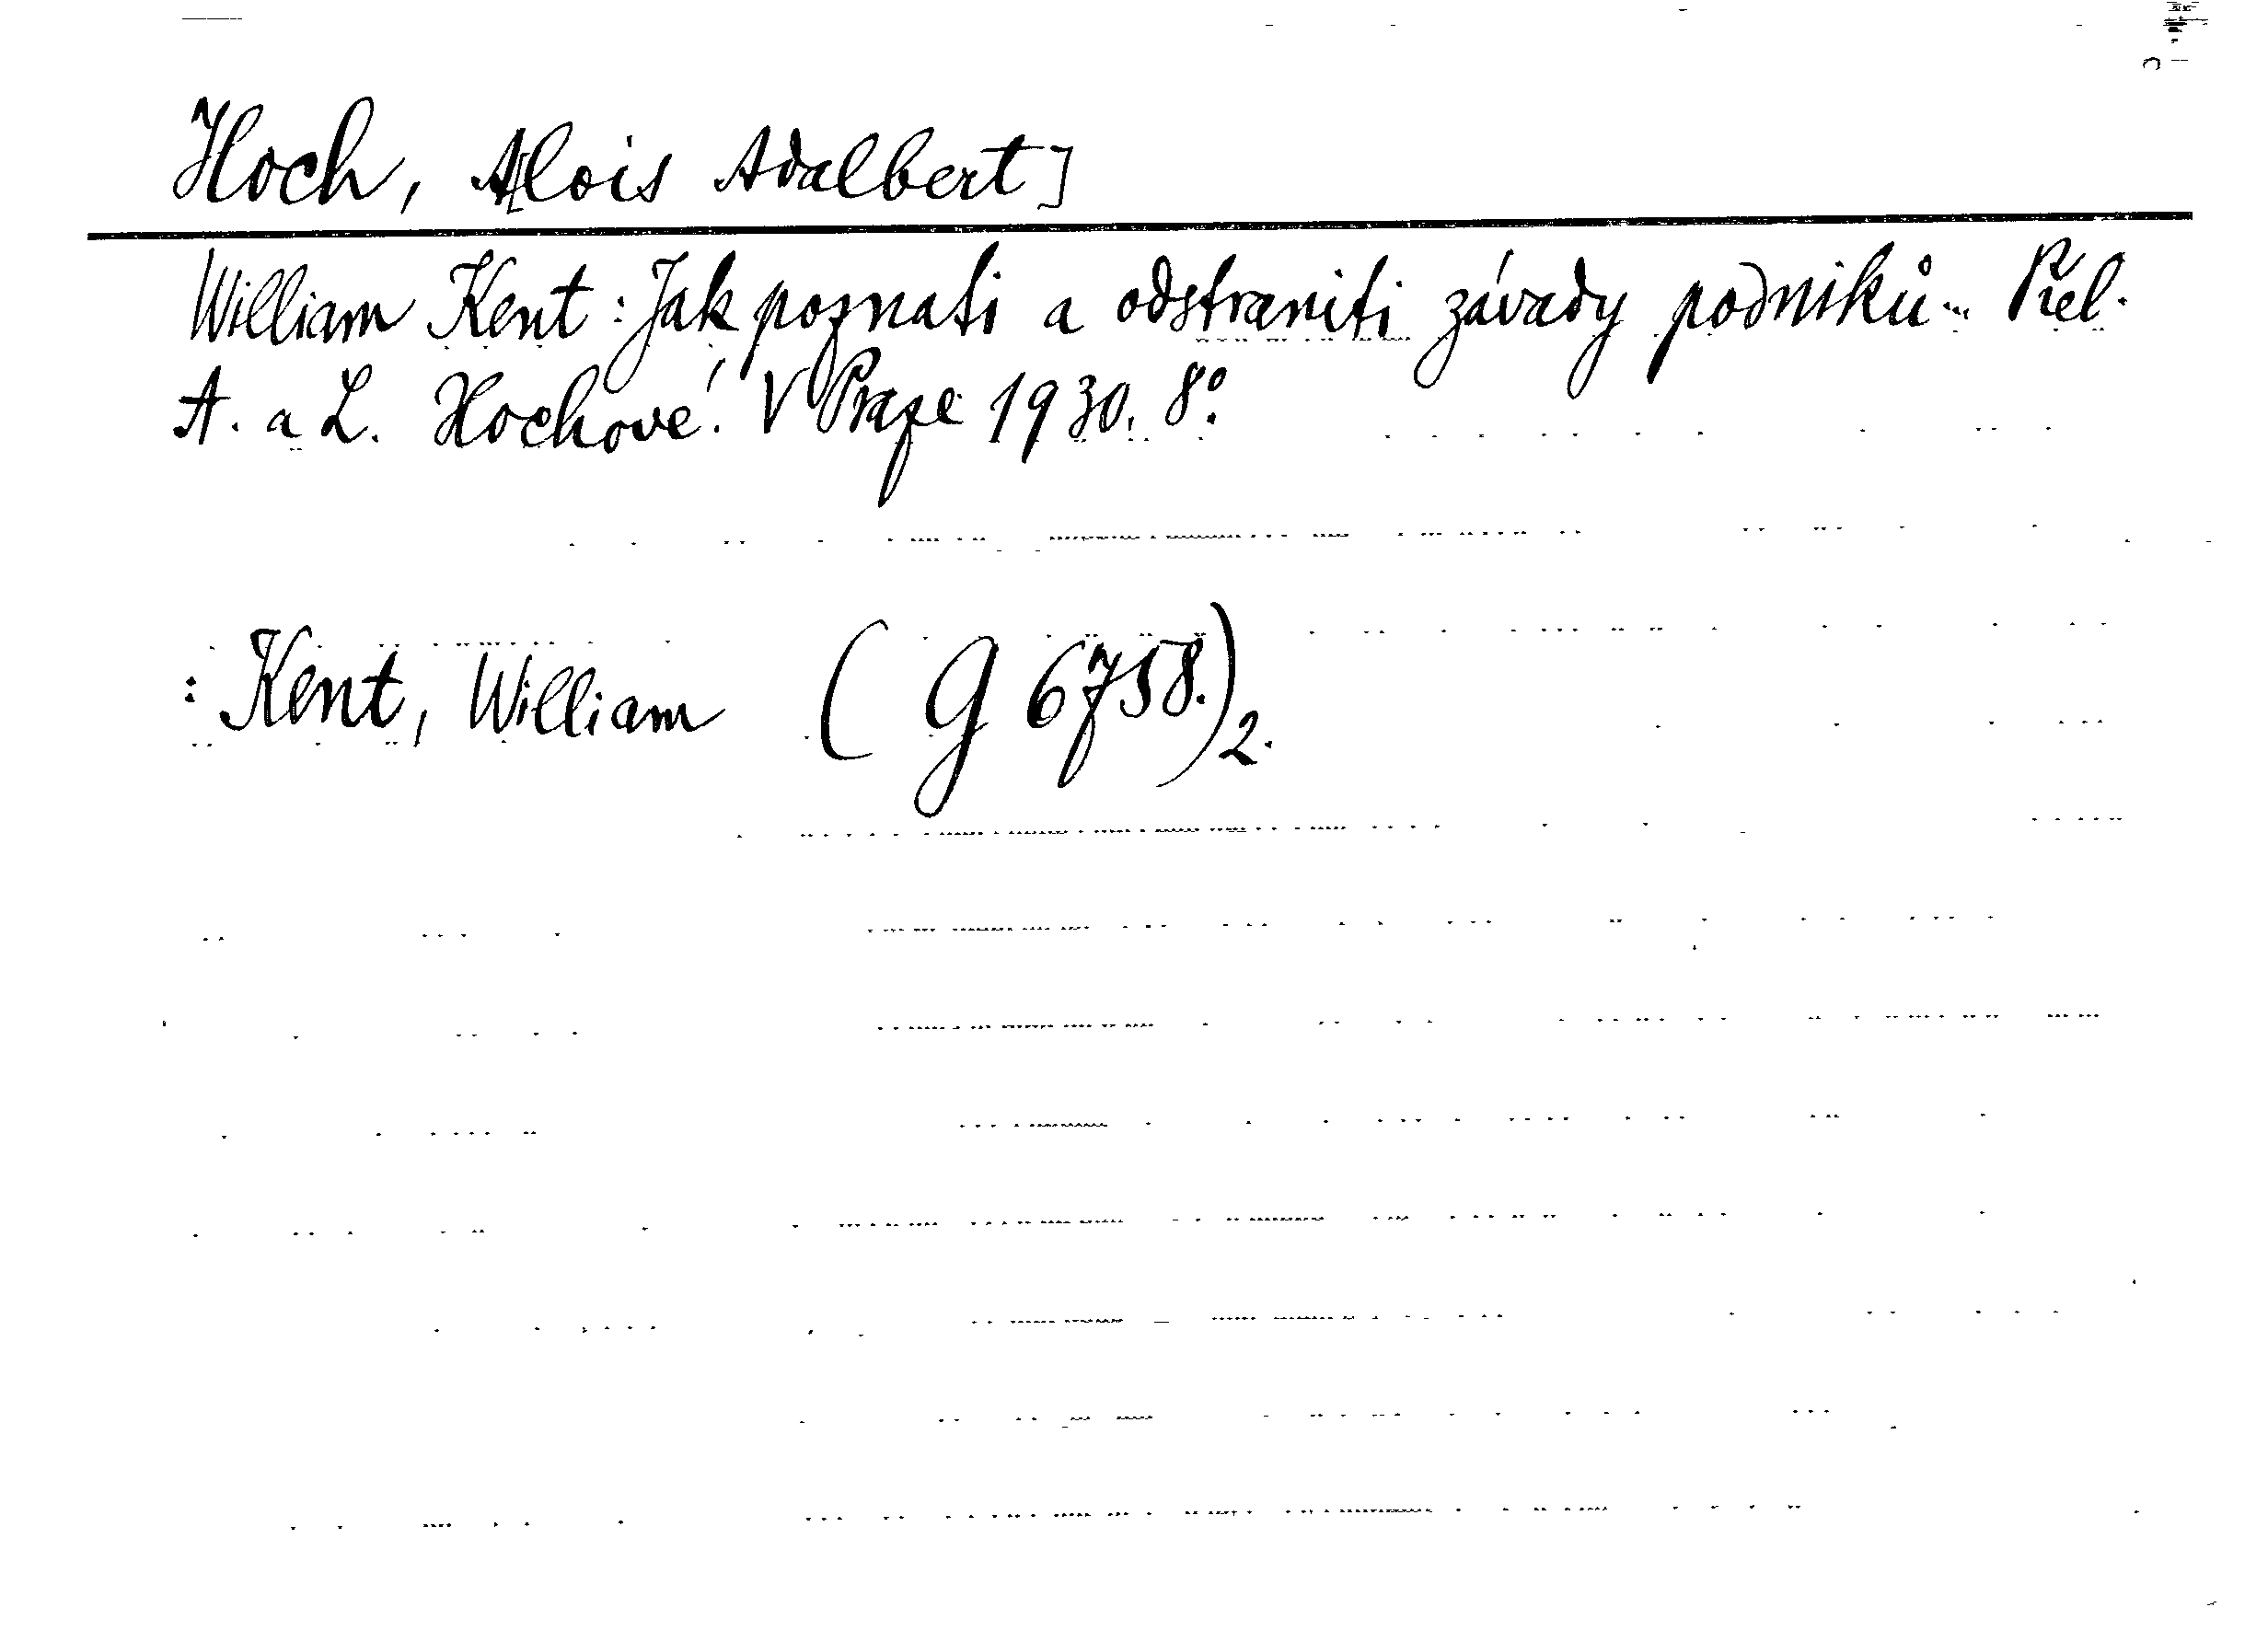 Hoch, A[lois Adalbert]
William Kent: Jak poznati a odstraniti závady podniků... Přel.
A. a L. Hochové. V Praze 1930. 8°.
: Kent, William (G 6758.)2.